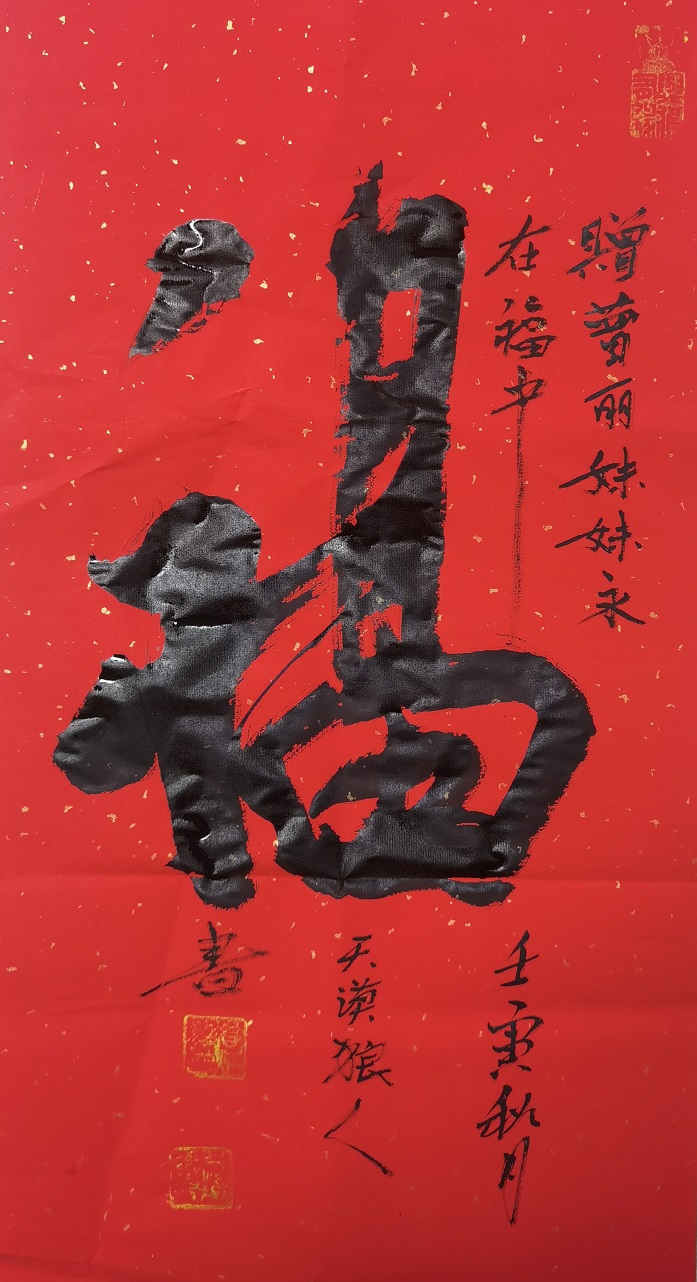 贈蕾丽妹妹永
在福中
福
壬寅秋月
天漠狼人
書